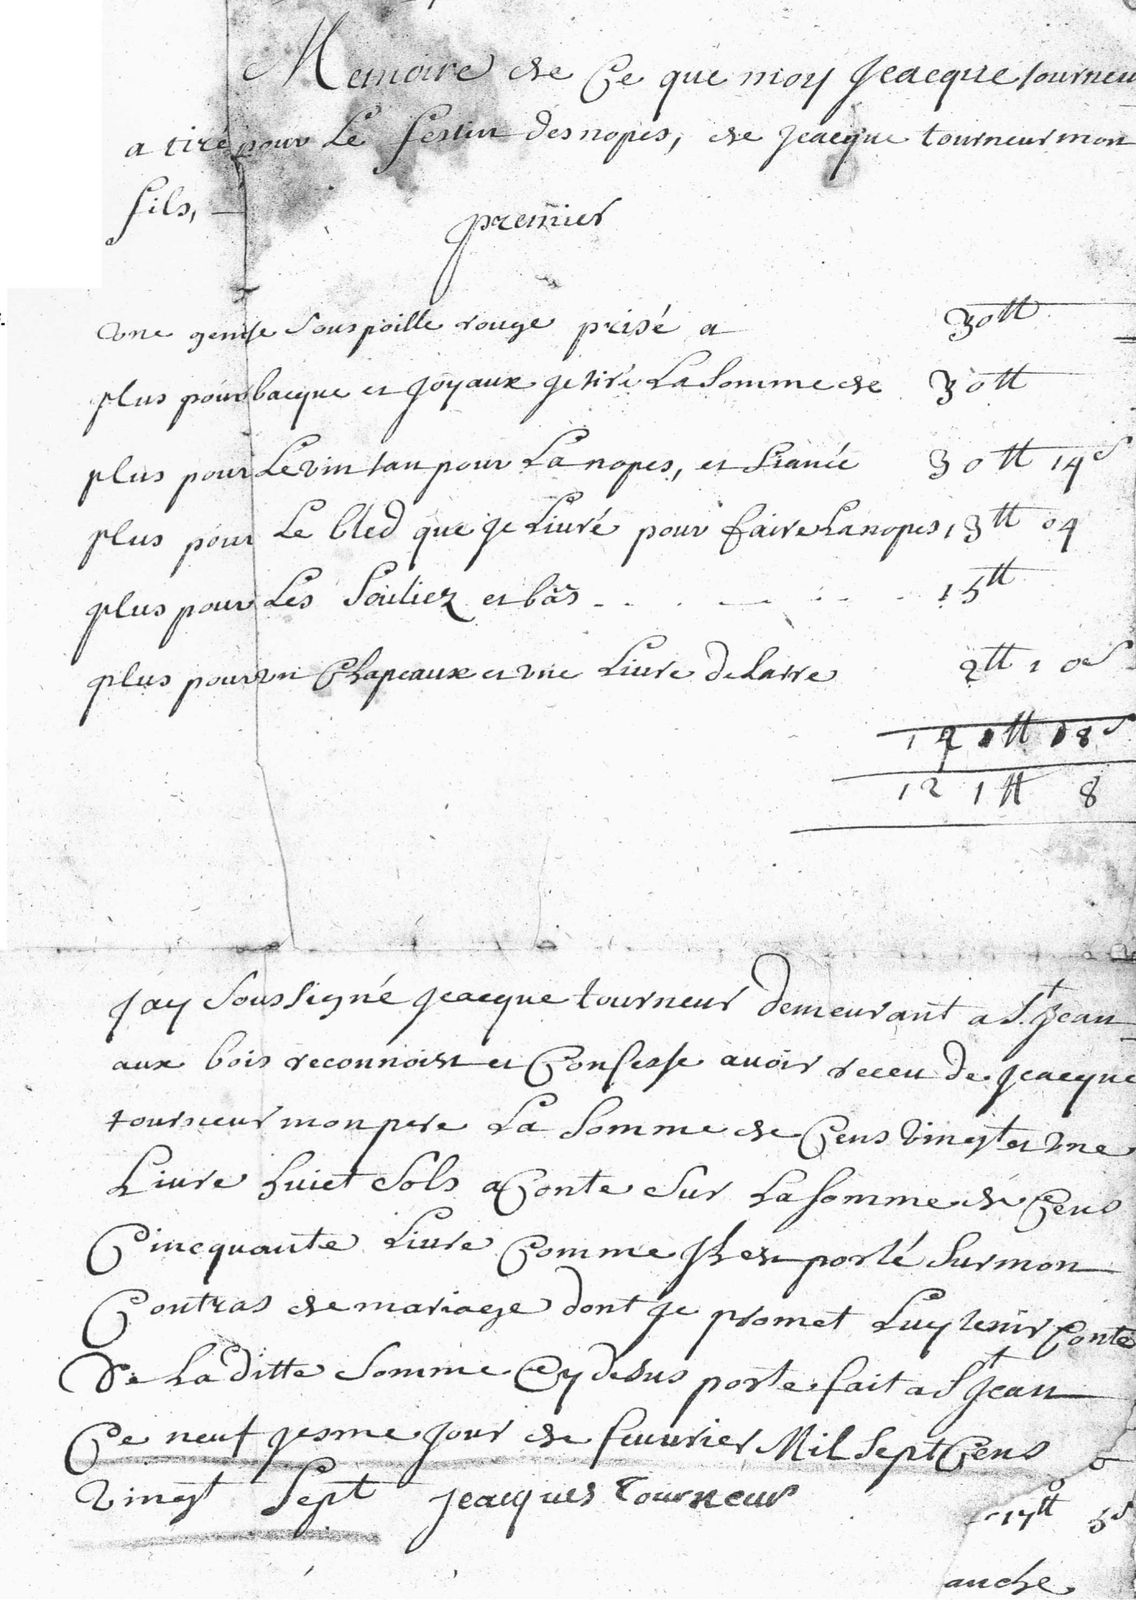 Memoire de Ce que moy Jeacque tourneur
a tiré pour Le festin des nopes, de jeacque tourneur mon
fils, —
premier
une genise sous poille rouge prisé a 30tt
plus pour bacque et joyaux je tiré La somme de 30tt
plus pour Le vin tan pour La nopes, et fiancé 30tt 14s
plus pour Le bled que je Livré pour faire La nopes, 13tt 04
plus pour Les souliez et bas - - - - - 15tt
plus pour un Chapeaux et une Livre de 2tt 10s
121tt 08s
121tt 8
Jay sous signé jeacque tourneur demeurant a St. Jean
aux bois reconnoist et Confesse avoir receu de jeacque
tourneur mon pere La somme de Cens vingt et une
Livre huict sols a Conte sur La somme de Cens
Cincquante Livre Comme Il est porté sur mon
Contras de mariage dont je promet Luy tenir Conte
De La ditte somme Cy desus porte fait a St Jean
Ce neuf jesme jour de fevvrier Mil sept Cens
vingt sept jeacques Tourneur
17tt 5s
anche